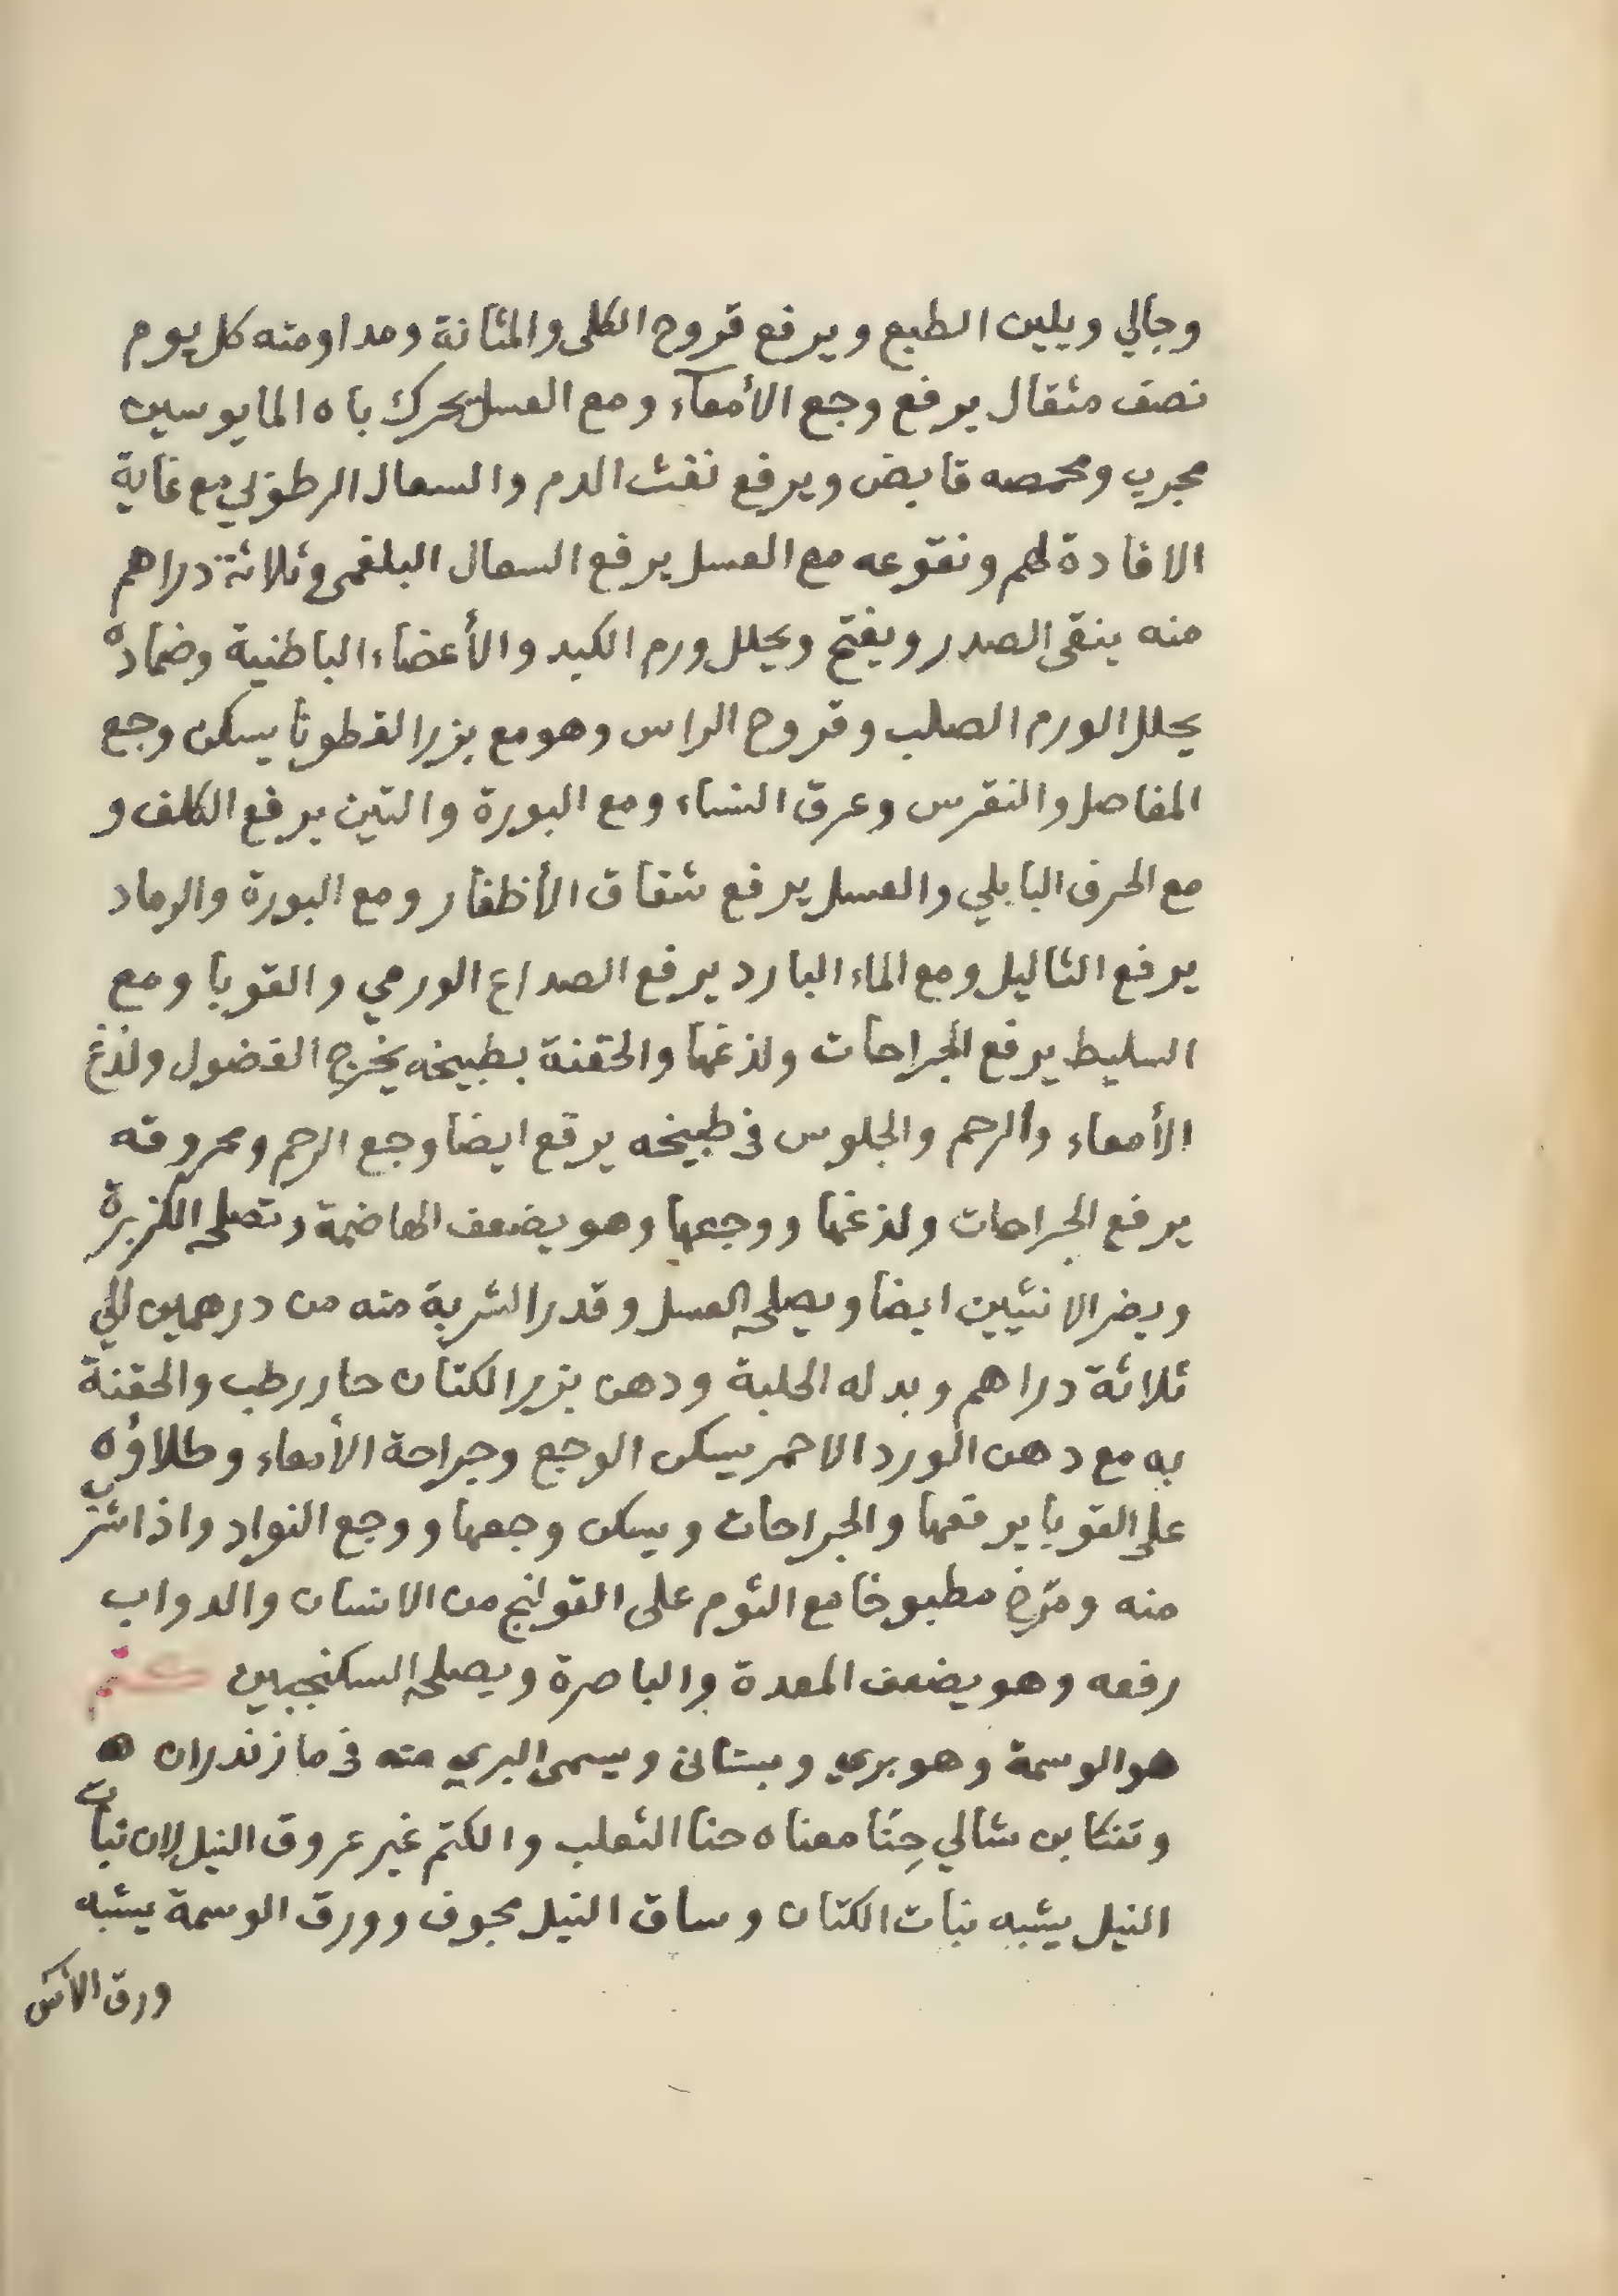 وجالي ويلين الطبع ويرفع قروح الكلى والمثانة ومداومته كل يوم
نصف مثقال يرفع وجع الأمعآء ومع العسل يحرك باه المايوسين
مجرب ومحمصه قابض ويرفع نفث الدم والسعال الرطوبي مع غاية
الافادة لهم ونقوعه مع العسل يرفع السعال البلغمى وثلاثة دراهم
منه ينقى الصدر ويفتح ويحلل ورم الكبد والأعضاء الباطنية وضماده
يحلل الورم الصلب وقروح الراس وهو مع بزر القطونا يسكن وجع
المفاصل والنقرس وعرق النساء ومع البورة والتين يرفع الكلف و
مع الحرف البابلي والعسل يرفع شقاق الأظفار ومع البورة والرماد
يرفع الثاليل ومع الماء البارد يرفع الصداع الورمي والقوبا ومع
السليط يرفع الجراحات ولذغها والحقنة بطبيخه يخرج الفضول ولذغ
الأمعاء والرحم والجلوس فى طبيخه يرفع ايضا وجع الرحم ومحروقه
يرفع الجراحات ولذغها ووجعها وهو يضعف الهاضمة وتصلحه الكزبرة
ويضر الانثيين ايضا ويصلحه العسل وقدر الشربة منه من درهمين الي
ثلاثة دراهم وبدله الحلبة ودهن بزر الكتان حار رطب والحقنة
به مع دهن الورد الاحمر يسكن الوجع وجراحة الأمعاء وطلاؤه
على القوبا يرفعها والجراحات ويسكن وجعها ووجع النواد واذا شرب
منه ومرخ مطبوخا مع الثوم على القولنج من الانسان والدواب
رفعه وهو يضعف المعدة والباصرة ويصلحه السكنجبين كتم
هو الوسمة وهو بري وبستانى ويسمى البري منه فى مازندران ه
وتنكابن شالي حِنّا معناه حنا الثعلب والكتم غير عروق النيل لان نبات
النيل يشبه نبات الكتان وساق النيل مجوف وورق الوسمة يشبه
ورق الآس